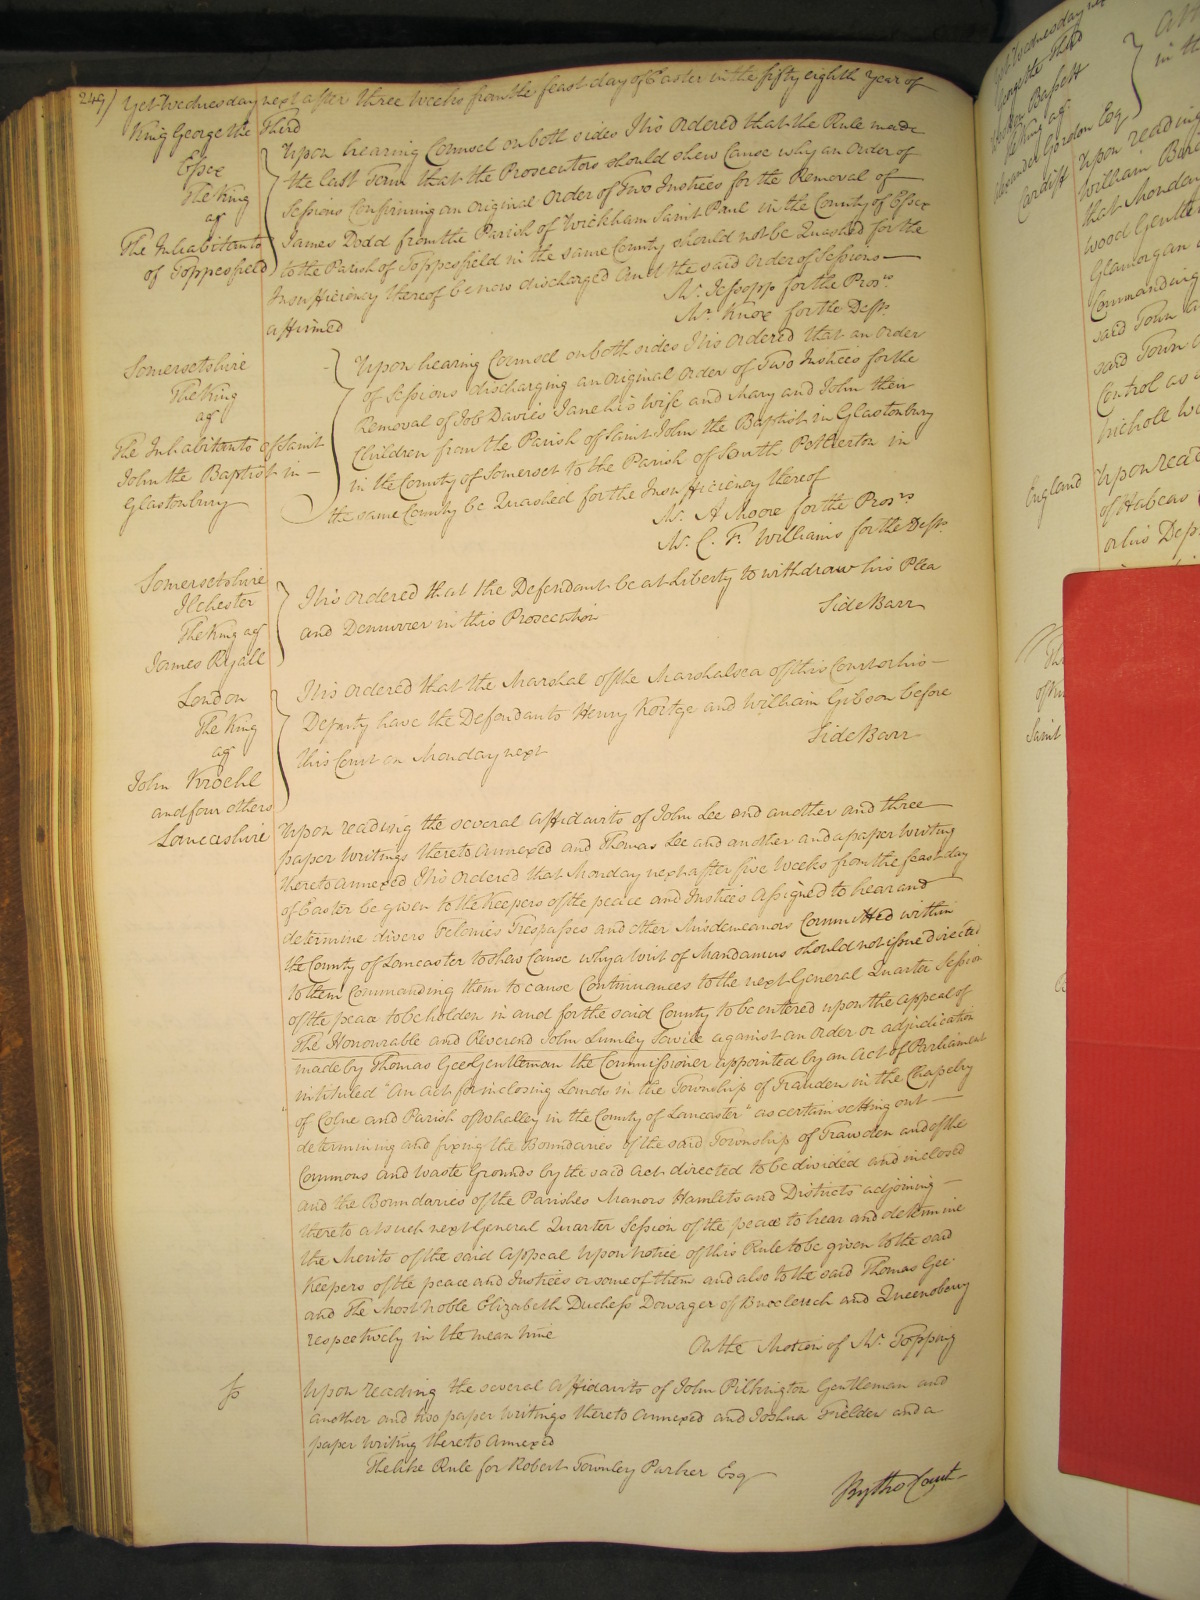 249) Yet Wednesday next after three Weeks from the feast day of Easter in the fifty eighth Year of
King George the Third
Essex
The King
agt
The Inhabitants
of Toppesfield
Upon hearing Counsel on both sides It is ordered that the Rule made
the last Term that the Prosecutors should shew Cause why an Order of
Sessions Confirming an Original Order of Two Justices for the Removal of
James Dodd from the Parish of Wickham Saint Paul in the County of Essex
to the Parish of Toppesfield in the same County should not be Quashed for the
Insufficiency thereof be now discharged And the said Order of Sessions
affirmed
Mr. Jessopp for the Prosrs
Mr. Knox for the Defts
Somersetshire
The King
agt
The Inhabitants of Saint
John the Baptist in
Glastonbury
Upon hearing Counsel on both sides It is ordered that an Order
of Sessions discharging an Original Order of Two Justices for the
Removal of Job Davies Jane his Wife and Mary and John their
Children from the Parish of Saint John the Baptist in Glastonbury
in the County of Somerset to the Parish of South Petherton in
the same County be Quashed for the Insufficiency thereof
Mr. A Moore for the Prosrs
Mr. C. F. Williams for the Defts
Somersetshire
Ilchester
The King agt
James Ryall
It is ordered that the Defendant be at Liberty to withdraw his Plea
and Demurrer in this Prosecution
Side Barr
London
The King
agt
John Kroehl
and four others
It is ordered that the Marshal of the Marshalsea of this Court or his
Deputy have the Defendants Henry Koitge and William Gibson before
this Court on Monday next
Side Barr
Lancashire
Upon reading the several affidavits of John Lee and another and three
paper Writings thereto annexed and Thomas Lee and another and a paper Writing
thereto annexed It is ordered that Monday next after five Weeks from the feast day
of Easter be given to the Keepers of the peace and Justices assigned to hear and
determine divers Felonies Trespasses and other Misdemeanors Committed within
the County of Lancaster to shew Cause why a Writ of Mandamus should not issue directed
to them Commanding them to cause Continuances to the next General Quarter Session
of the peace to be holden in and for the said County to be entered upon the appeal of
The Honourable and Reverend John Lumley Savile against an Order or adjudication
made by Thomas Gee Gentleman the Commissioner appointed by an Act of Parliament
intituled "An Act for inclosing Lands in the Township of Trawden in the Chapelry
of Colne and Parish of Whalley in the County of Lancaster" ascertain setting out
determining and fixing the Boundaries of the said Township of Trawden and of the
Commons and waste Grounds by the said Act directed to be divided and inclosed
and the Boundaries of the Parishes Manors Hamlets and Districts adjoining
thereto at such next General Quarter Session of the peace to hear and determine
the Merits of the said Appeal Upon notice of this Rule to be given to the said
Keepers of the peace and Justices or some of them and also to the said Thomas Gee
and The Most Noble Elizabeth Duchess Dowager of Buccleuch and Queensberry
respectively in the mean time
On the Motion of Mr. Topping
Upon reading the several affidavits of John Pilkington Gentleman and
another and two paper Writings thereto annexed and Joshua Fielden and a
paper Writing thereto annexed
The like Rule for Robert Townley Parker Esq
By the Court
George the Third
Wootton Bassett
The King agt
Gordon Esq
Cardiff
Upon reading
William
that Monday
wood Gentle
Glamorgan
Commanding
said Town
said Town
Control
Nichole
England
Upon read
of Habeas
or his Dep
Saint